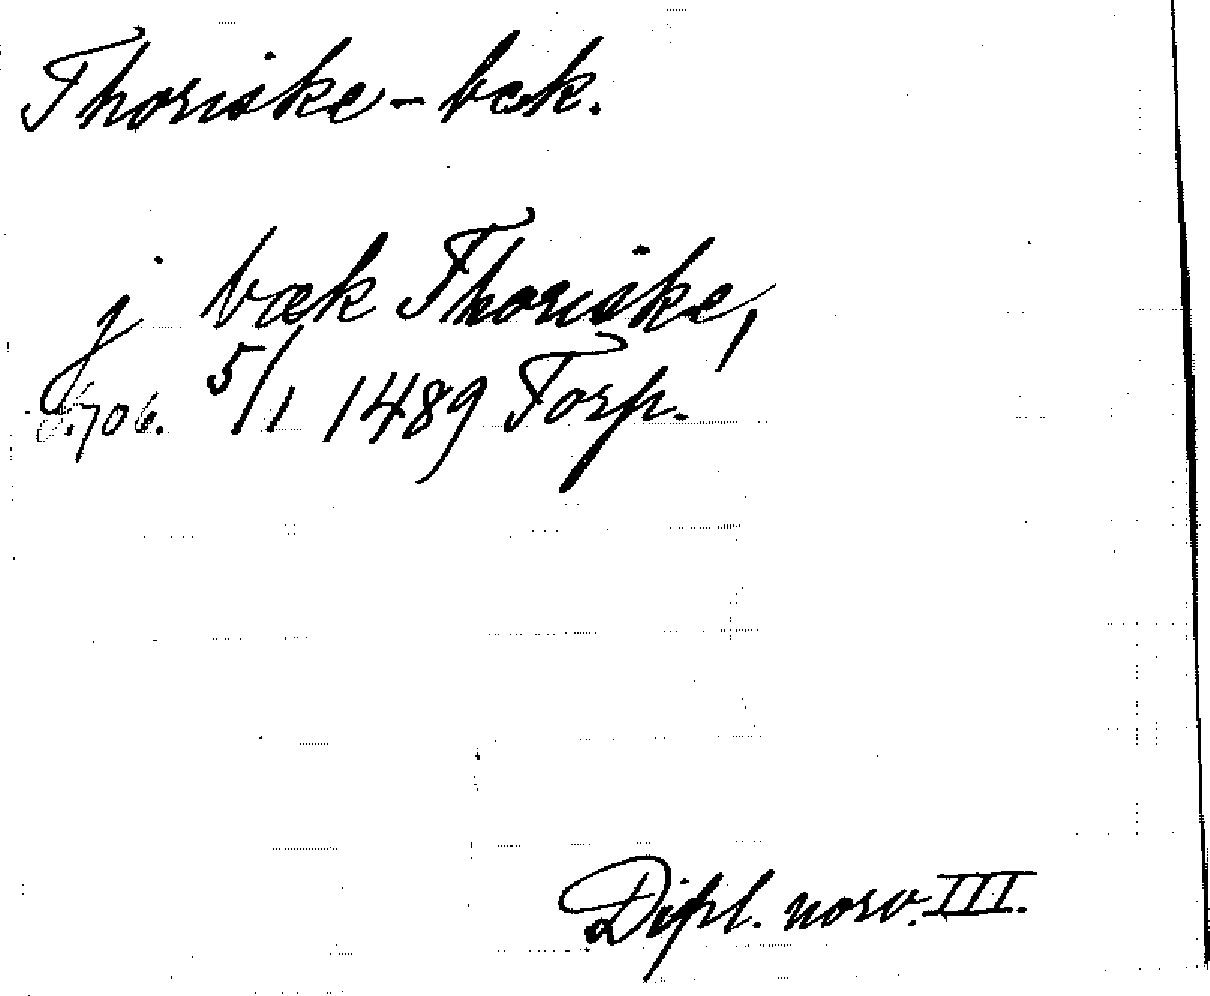 Thoriske-bæk.
j bæk Thoriske,
s.706. 5/1 1489 Torp.
Dipl. norv. III.